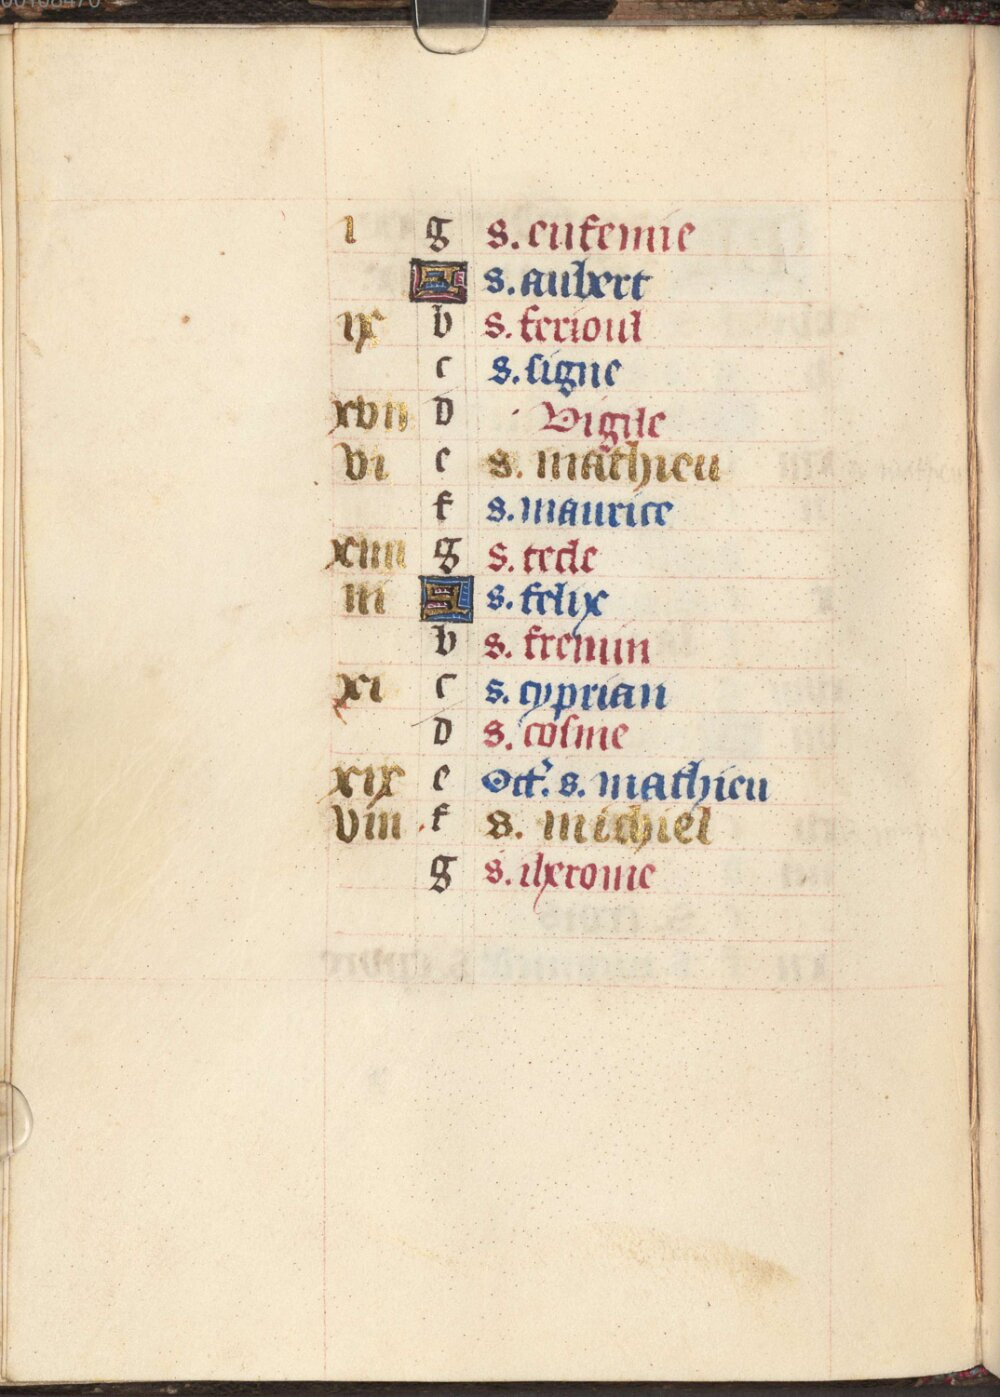 i g s. eufemie
A s. aubert
ix b s. ferioul
c s. signe
xvii d Vigile
vi e s. mathieu
f s. maurice
xiiii g s. tecle
iii A s. felix
b s. fremin
xi c s. cyprian
d s. cosme
xix e Oct. s. mathieu
viii f s. michiel
g s. iherome